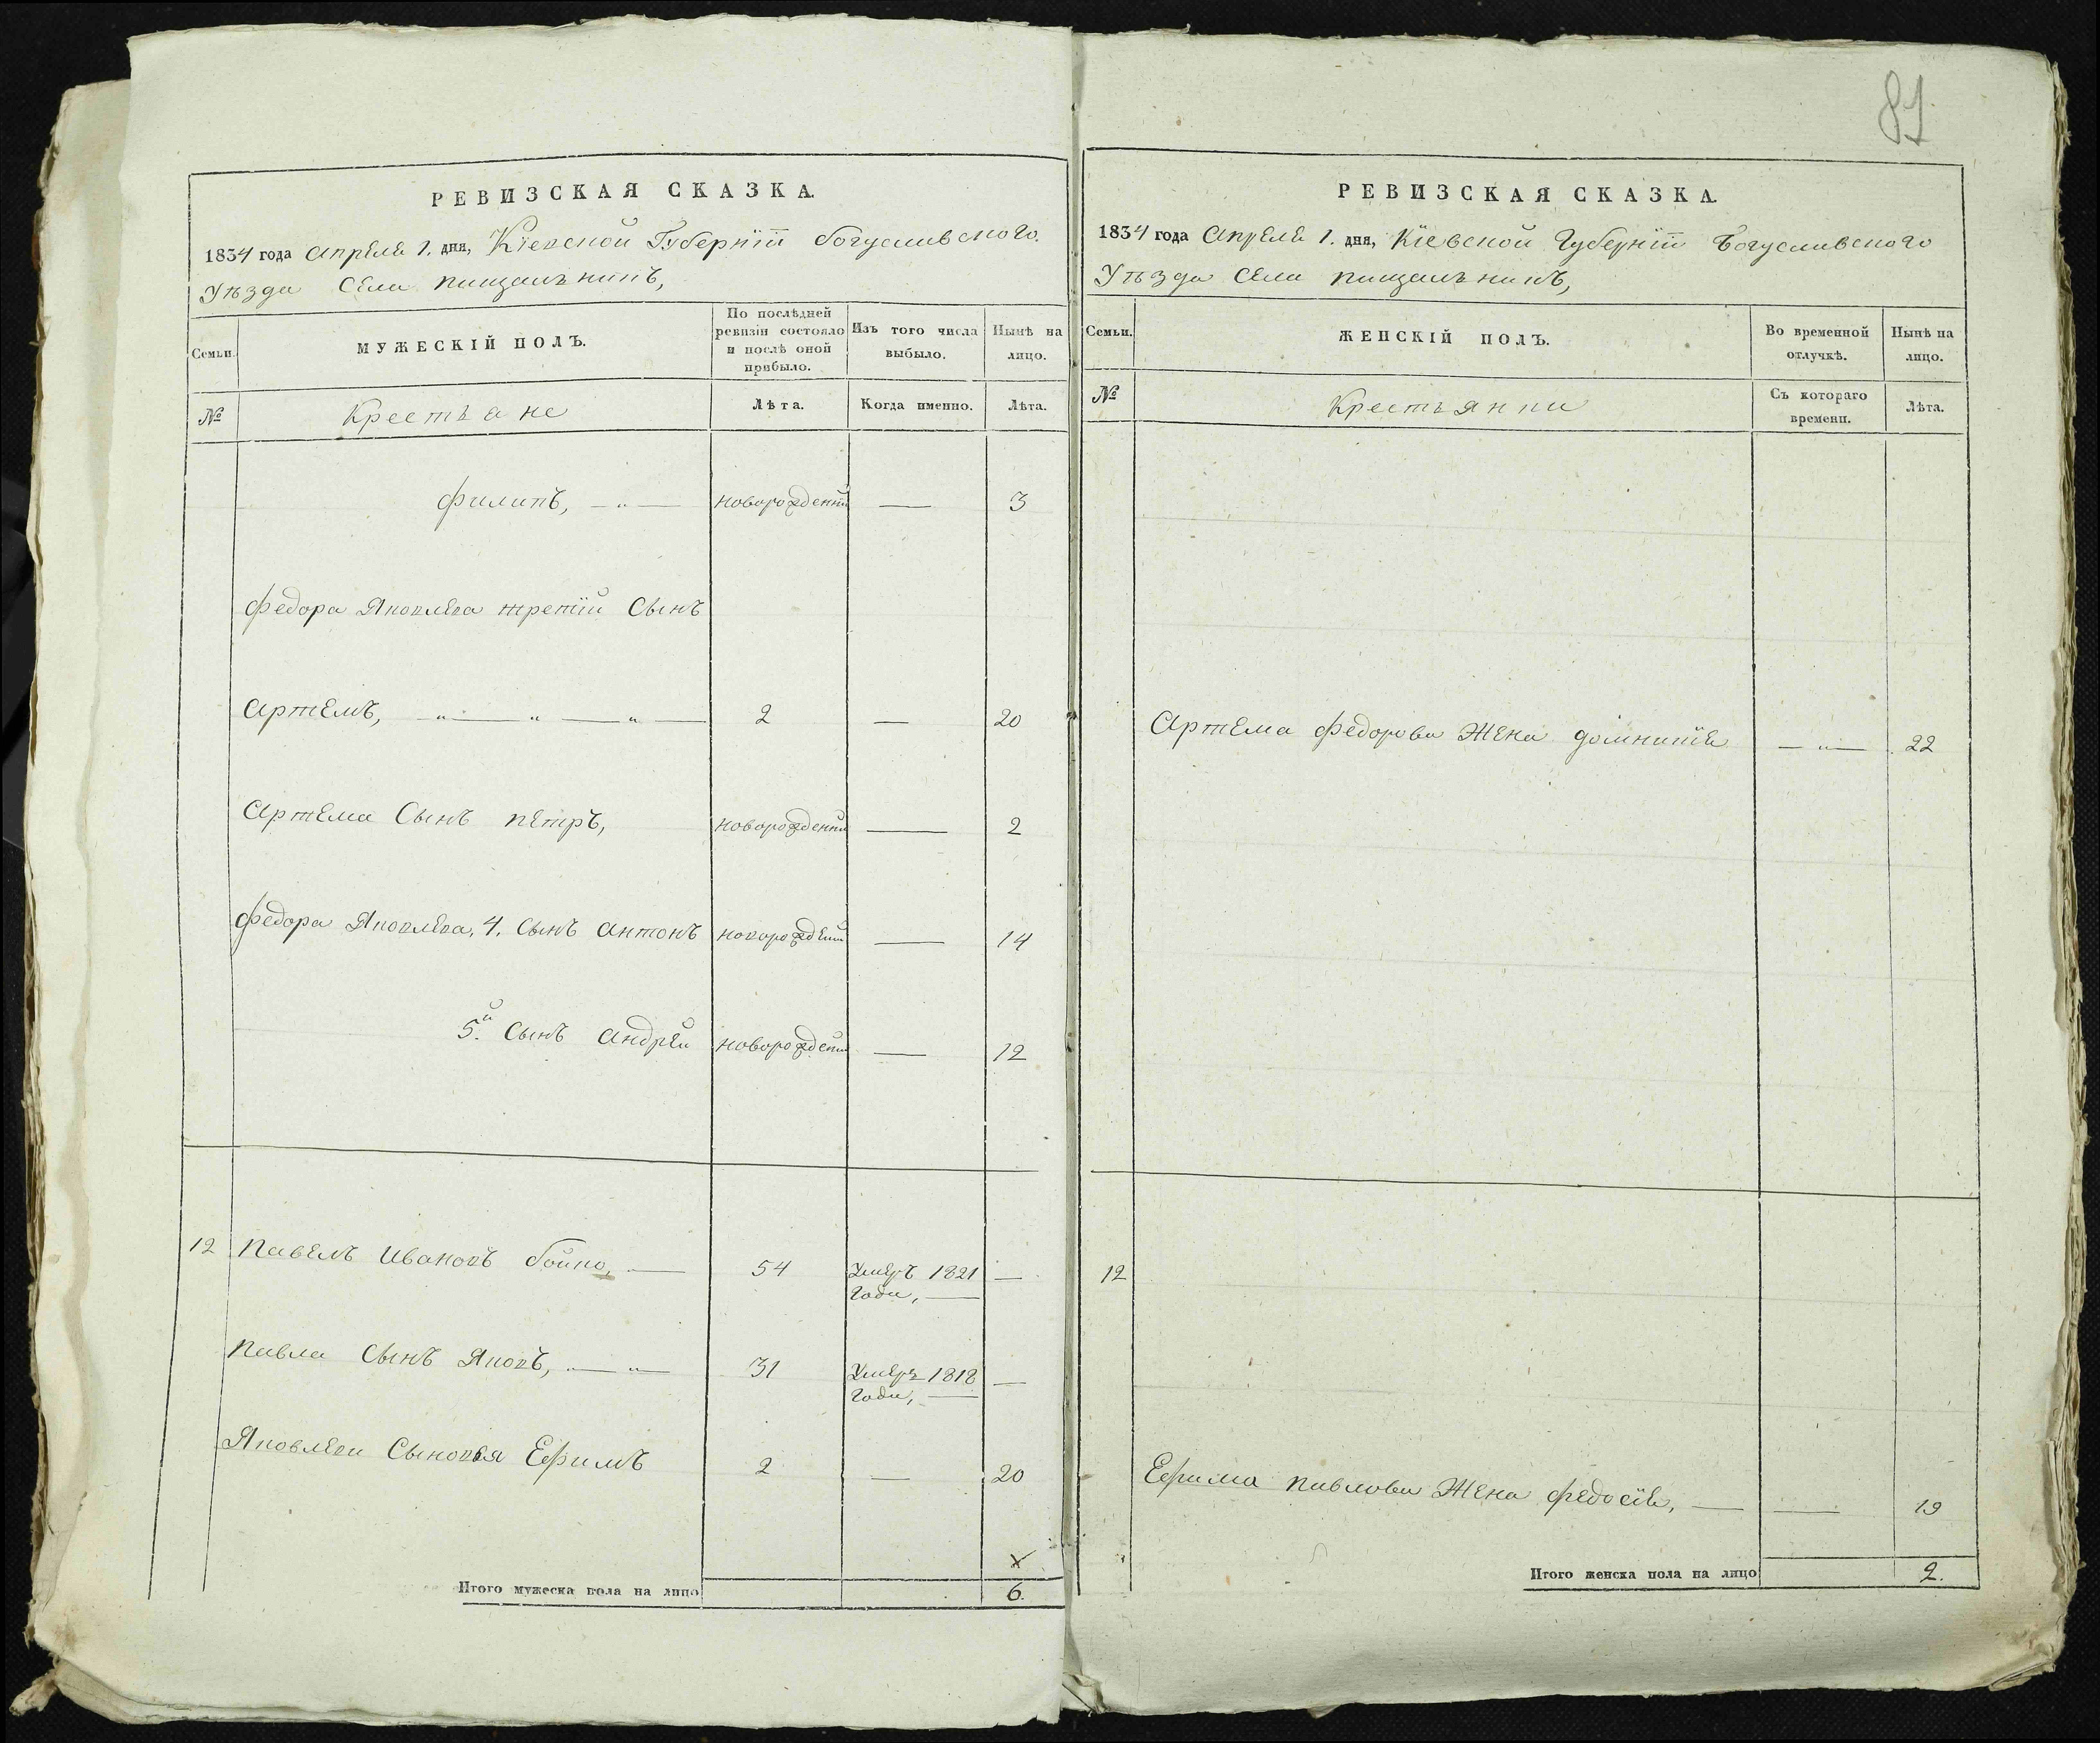 РЕВИЗСКАЯ СКАЗКА.
1834 года Апреля 1. дня, Кіевской Губерніи богуславского
Уѣзда Села пищальникъ,
Семьи.
МУЖЕСКІЙ ПОЛЪ.
По послѣдней ревизіи состояло и послѣ оной прибыло.
Изъ того числа выбыло.
Нынѣ на лицо.
№
Крестьяне
Лѣта.
Когда именно.
Лѣта.
филипъ, новорожденній — 3
федора Яковлева третій Сынъ
Артемъ, 2 — 20
Артема Сынъ петръ, новорожденній — 2
федора Яковлева, 4. Сынъ Антонъ новорождений — 14
5.й Сынъ Андрей новорождений — 12
12 Павелъ Ивановъ бойко, — 54 Умеръ 1821 —
Года, —
Павла Сынъ Яковъ, 31 Умеръ 1818 —
Года, —
Яковлеви Сыновья Ефимъ 2 — 20
Итого мужеска пола на лицо 6.
81
РЕВИЗСКАЯ СКАЗКА.
1834 года Апреля 1. дня, Кіевской Губерніи Богуславского
Уѣзда Села пищальникъ,
Семьи.
ЖЕНСКІЙ ПОЛЪ.
Во временной отлучкѣ.
Нынѣ на лицо.
№
Крестьянки
Съ котораго времени.
Лѣта.
Артема федорова Жена домникія — 22
12
Ефима павлова Жена федосія, — — 19
Итого женска пола на лицо 2.